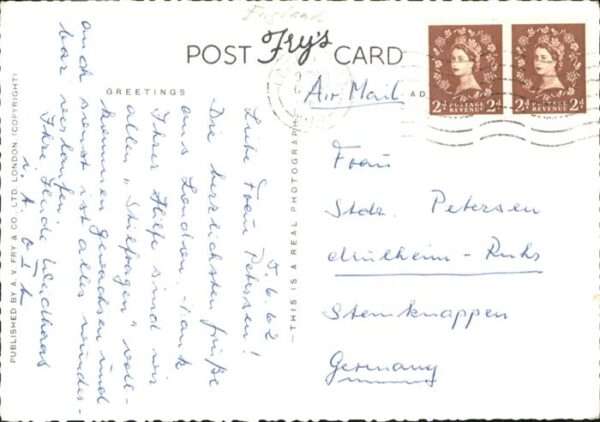 England
POST Fry's CARD
GREETINGS
Air Mail
AD
2d POSTAGE REVENUE 2d
2d POSTAGE REVENUE 2d
5.6.62
Liebe Frau Petersen!
Die herzlichsten Grüße
aus London. Dank
Ihrer Hilfe sind wir
allen „Stilfragen" voll-
kommen gewachsen und
auch sonst ist alles wunder-
bar verlaufen.
Ihre
Frau
Stdr. Petersen
Mülheim-Ruhr
Steinknappen
Germany
THIS IS A REAL PHOTOGRAPH
PUBLISHED BY A. V. FRY & CO., LTD. LONDON (COPYRIGHT)